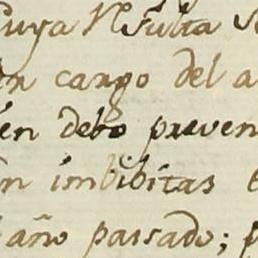 cuya Rⁿ fulta
cargo del a
en debo preven
imbibitas
año passado; p